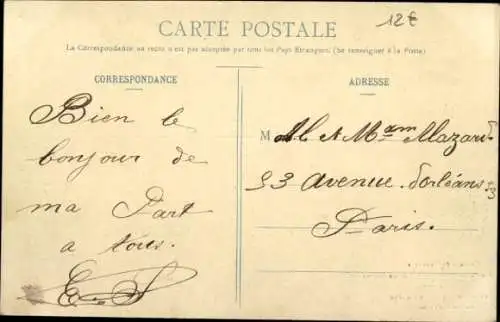 CARTE POSTALE
12€
La Correspondance au recto n'est pas acceptée par tous les Pays Etrangers. (Se renseigner à la Poste)
CORRESPONDANCE
Bien le
bonjour de
ma Part
a tous.
E. S
ADRESSE
M M et Mme Mazard
53 avenue d'orléans 53
Paris.